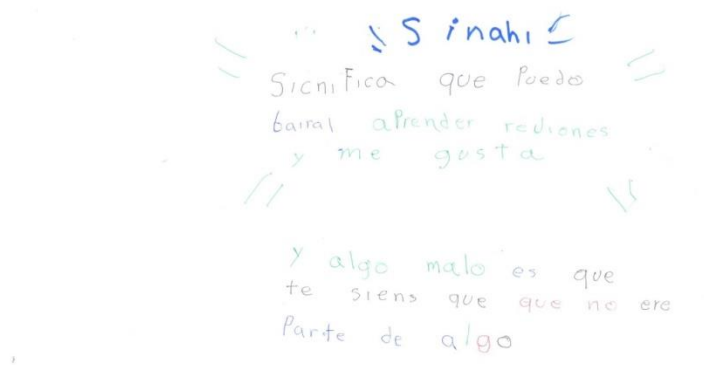 Sinahi
Significa que Puedo
bairal aPrender rediones
y me gusta
y algo malo es que
te siens que que no ere
Parte de algo